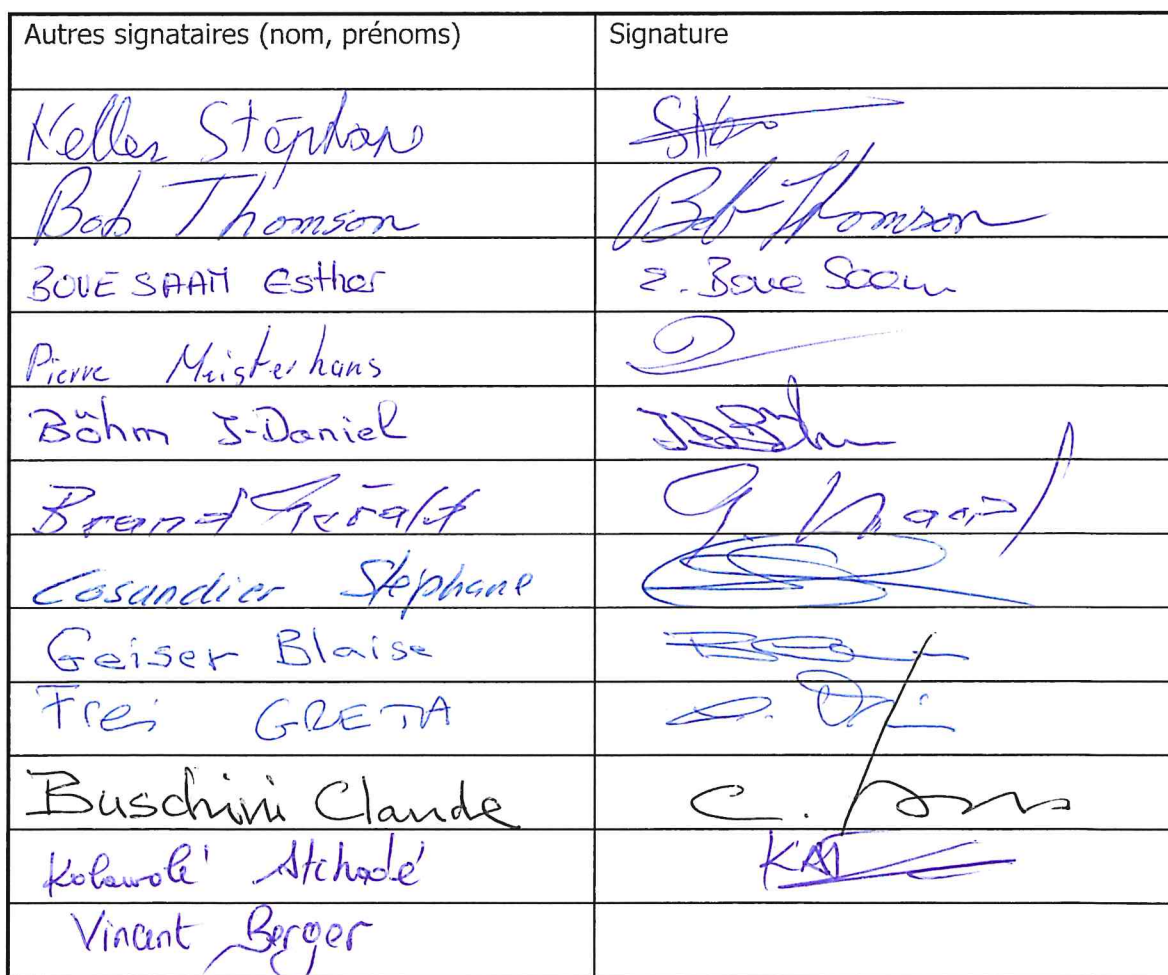 Autres signataires (nom, prénoms) Signature
Keller Stéphane
Bob Thomson Bob Thomson
BOVE SAAM Esther E. Bove Saam
Pierre Meisterhans
Böhm J-Daniel
Brand Gérald
Cosandier Stéphane
Geiser Blaise
Frei GRETA
Buschini Claude C.
Kolawolé Atchadé KA
Vincent Berger